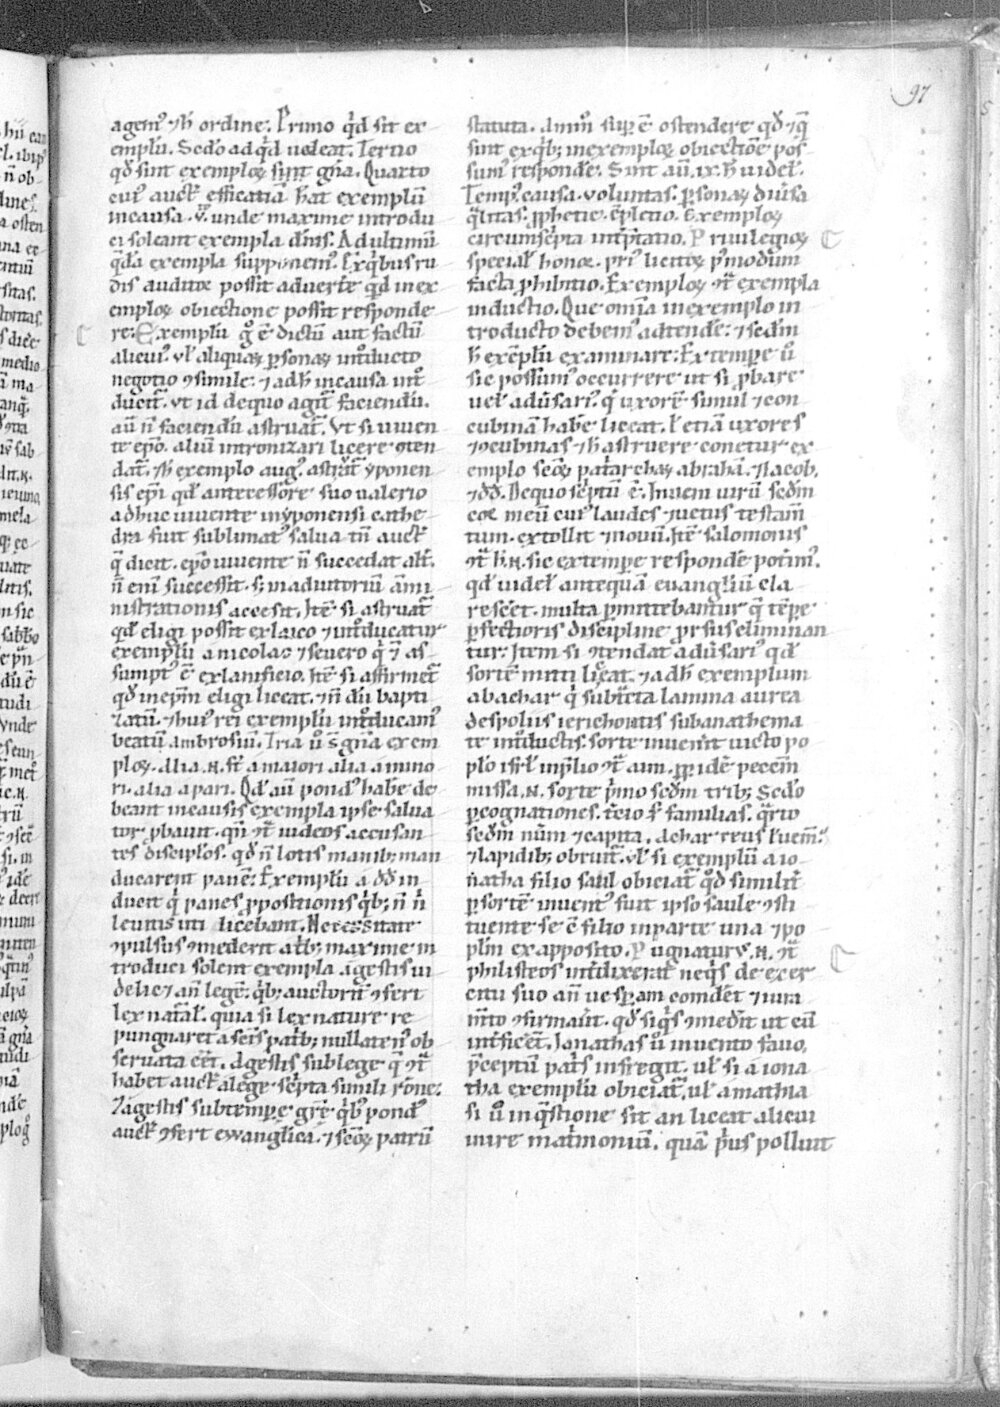 97
agem᷒ ⁊ h̄ ordine. Primo qͥd sit ex
emplū. Scd̓o ad qͥd ualeat. Tertio
qd̓ sint exemploꝝ sint gn̄a. Quarto
cui᷒ auct̄ efficatiā hēat exemplū
in causa. vͦ. unde maxime introdu
ci soleant exempla dn̄is. Ad ultimū
q̄dā exempla supponem᷒. Ex qͥbus ru
dis auditor possit aduert̓e qͥd in ex
emploꝝ obiectione possit responde
re. Exemplū gͦ ē dictū aut factū
alicui᷒. ul̓ aliquaꝝ ꝑsonaꝝ int̓ducto
negotio ꝯsimile. ⁊ ad h̄ in causa int̓
ducit̄. ut id de quo agit̄ faciendū.
aū n̄ faciendū astruat̄. Ut si uiuen
te ep̄o. aliū intronizari licere ꝯten
dat̄. ⁊ h̄ exemplo aug᷒. astruat̄ yponen
sis ep̄i qd̓ antecessore suo ualerio
adhuc uiuente in yponensi cathe
dra fuit sublimat᷒ salua tn̄ auct̄
q̄ dicit. ep̄o uiuente n̄ succedat alt̓.
n̄ eni᷒ successit. s; in adiutoriū āmi
nistrationis accessit. Itē si astruat̄
qd̓ eligi possit ex laico ⁊ int̓ducatur
exemplū a nicolao ⁊ seuero qͥ ⁊ as
sumpt᷒ ē ex lanificio. Itē si affirmet̄
qd̓ in ep̄m eligi liceat. ⁊ n̄ dū bapti
zatū. ⁊ hui᷒ rei exemplū int̓ducam᷒
beatū ambrosiū. Tria uͦ s̄ gn̄a exem
ploꝝ. Alia .N. s̄t a maiori alia a mino
ri. alia a pari. Qd̓ aū pond᷒ hab̓e de
beant in causis exempla ipse salua
tor ꝓbauit. qn̄ ꝯt̄ iudeos accusan
tes discip̓los. qd̓ n̄ lotis manib; man
ducarent panē. Exemplū a dd̓ in
ducit qͥ panes ꝓpositionis qͥb; n̄ n̄
leuitis uti licebant. Necessitate
ꝯpulsus ꝯmederit
troduci solent exempla a gestis ui
delic; an̄ legē. qͥb; auctorit̄ ꝯfert
lex nat̓al̓. quia si lex nature re
pungnaret a sc̄is patͥb; nullaten᷒ ob
seruata eēt. A gestis sub lege qͥ ꝯt̄
habet auct̄ a lege sc̓pta simili rōne.
⁊ a gestis sub temp̓e gr̄e qͥb᷒ pond᷒
auct̄ ꝯfert ewanglica. ⁊ scōꝝ patrū
statuta. Amm᷒ sup̓ ē ostendere qd̓ ⁊ q̄
sint ex qͥb; in exemploꝝ obiectiōe pos
sum᷒ responde. Sint aū .ix. h̄ uidel̓.
Temp᷒. causa. uoluntas. ꝑsonaꝝ diu̓sa
q̓litas. ꝓphetie. exp̄letio. Exemploꝝ
circumsc̓pta int̓p̄tatio. Priuilegioꝝ
special̓ honor. pri᷒ licitoꝝ p᷒modum
facta ꝓhibitio. Exemploꝝ ꝯt̄ exempla
inductio. Que om̄ia in exemplo in
troducto debem᷒ adtende. ⁊ scd̓m
h̄ exēplū examinare. Ex temp̓e uͦ
sic possum᷒ occurrere ut si ꝓbare
uelit adu̓sari᷒. qͥ uxorē simul ⁊ con
cubinā hab̓e liceat. ul̓ etiā uxores
⁊ ꝯcubinas ⁊ h̄ astruere conetur ex
emplo scōꝝ pat̓archaꝝ abrahā. ⁊ iacob.
⁊ dd̓. De quo sc̓ptū ē. Inueni uirū scd̓m
cor meū cui᷒ laudes ⁊ uetus testam̄
tum. extollit ⁊ nouū. Itē salomonis
ꝯt̄ h̄ .N. sic ex temp̓e responde poterim᷒.
qd̓ uidel̓ antequā euangliū cla
resc̓et. multa p̓mittebantur q̄ temp̓e
ꝑfectioris discipline prorsus eliminan
tur. Item si ꝯtendat adu̓sari᷒ qd̓
sortē mitti liceat. ⁊ ad h̄ exemplum
ab achar qͥ subt̓cta lamina aurea
de spoliis ierichontis sub anathema
te int̓ductis. sorte inuenit̄ uicto po
plo isr̄l̓ in p̓lio ꝯt̄
missa .N. sorte p̓mo scd̓m trib; Scd̓o
p cognationes. t̓cio s̄ familias. q̓rto
scd̓m num̄ ⁊ capita. Achar reus īuenit᷒.
⁊ lapidib; obruit̄. ul̓ si exemplū a io
natha filio saul obiciat̄ qd̓ similit̓
ꝑ sortē inuent᷒ fuit ipso saule ꝯsti
tuente se cū filio in parte una ⁊ po
plm̄ ex apposito. Pugnatur᷒ .N. ꝯt̄
philisteos int̓dixerat neqͥs de exer
citu suo an̄ uesꝑam comd̓et ⁊ iura
m̄to ꝯfirmauit. qd̓ siqͥs ꝯmed̓it ut eū
int̓ficeēt. Ionathas uͦ inuento fauo,
p̄ceptū patͥs infregit. ul̓ si a iona
tha exemplū obiciat̄. ul̓ a mathia
si uͦ inq̓stione sit an liceat alicui
inire mat̓monium. quā p̓us polluit